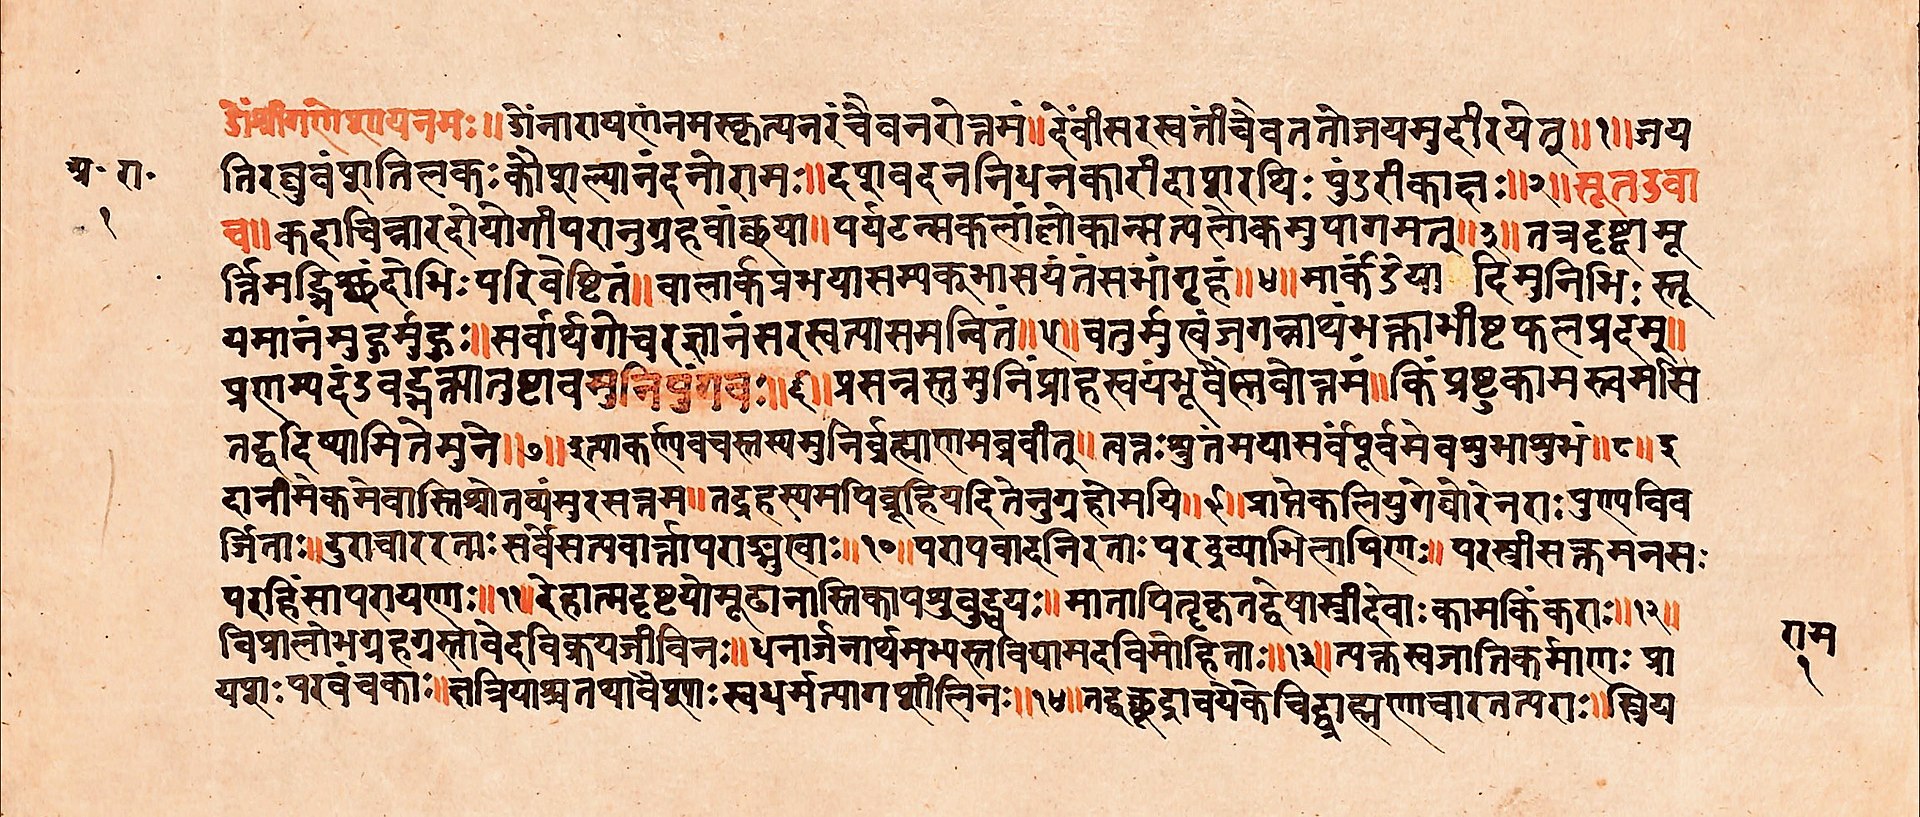 ॐश्रीगणेशायनमः॥ॐनारायणंनमस्कृत्यनरंचैवनरोत्तमं॥देवींसरस्वतींचैवततोजयमुदीरयेत्॥१॥जय
अ॰ रा॰
तिरघुवंशतिलकःकौशल्यानंदनोरामः॥दशवदननिधनकारीदाशरथिःपुंडरीकाक्षः॥२॥सूतउवा
१
च॥कदाचिन्नारदोयोगीपरानुग्रहवांछया॥पर्यटन्सकलांलोकान्सत्यलोकमुपागमत्॥३॥तत्रदृष्ट्वामू
र्त्तिमद्भिश्छंदोभिःपरिवेष्टितं॥बालार्कप्रभयासम्यक्भासयंतंसभांगृहं॥४॥मार्कंडेया दिमुनिभिःस्तू
यमानंमुहुर्मुहुः॥सर्वार्थगोचरज्ञानंसरस्वत्यासमन्वितं॥५॥चतुर्मुखंजगन्नाथंभक्ताभीष्टफलप्रदम्॥
प्रणम्यदंडवद्भक्त्यातुष्टावमुनिपुंगवः॥६॥प्रसन्नस्तुमुनिंप्राहस्वयंभूर्वैष्णवोत्तमं॥किंप्रष्टुकामस्त्वमसि
तद्वदिष्यामितेमुने॥७॥इत्याकर्ण्यवचस्तस्यमुनिर्ब्रह्माणमब्रवीत्॥त्वत्तःश्रुतंमयासर्वंपूर्वमेवशुभाशुभं॥८॥इ
दानीमेकमेवास्तिश्रोतव्यंसुरसत्तम॥तद्रहस्यमपिब्रूहियदितेनुग्रहोमयि॥९॥प्राप्तेकलियुगेघोरेनराःपुण्यविव
र्जिताः॥दुराचाररताःसर्वेसत्यवार्त्तापराङ्मुखाः॥१०॥परापवादनिरताःपरद्रव्याभिलाषिणः॥परस्त्रीसक्तमनसः
परहिंसापरायणाः॥११॥देहात्मदृष्टयोमूढानास्तिकापशुबुद्धयः॥मातापितृकृतद्वेषास्त्रीदेवाःकामकिंकराः॥१२॥
विप्रालोभग्रहग्रस्तावेदविक्रयजीविनः॥धनार्जनार्थमभ्यस्तविद्यामदविमोहिताः॥१३॥त्यक्तस्वजातिकर्माणःप्रा
राम
यशःपरवंचकाः॥क्षत्रियाश्चतथावैश्याःस्वधर्मत्यागशीलिनः॥१४॥तद्वच्छूद्राश्चयेकेचिद्ब्राह्मणाचारतत्पराः॥स्त्रिय
१